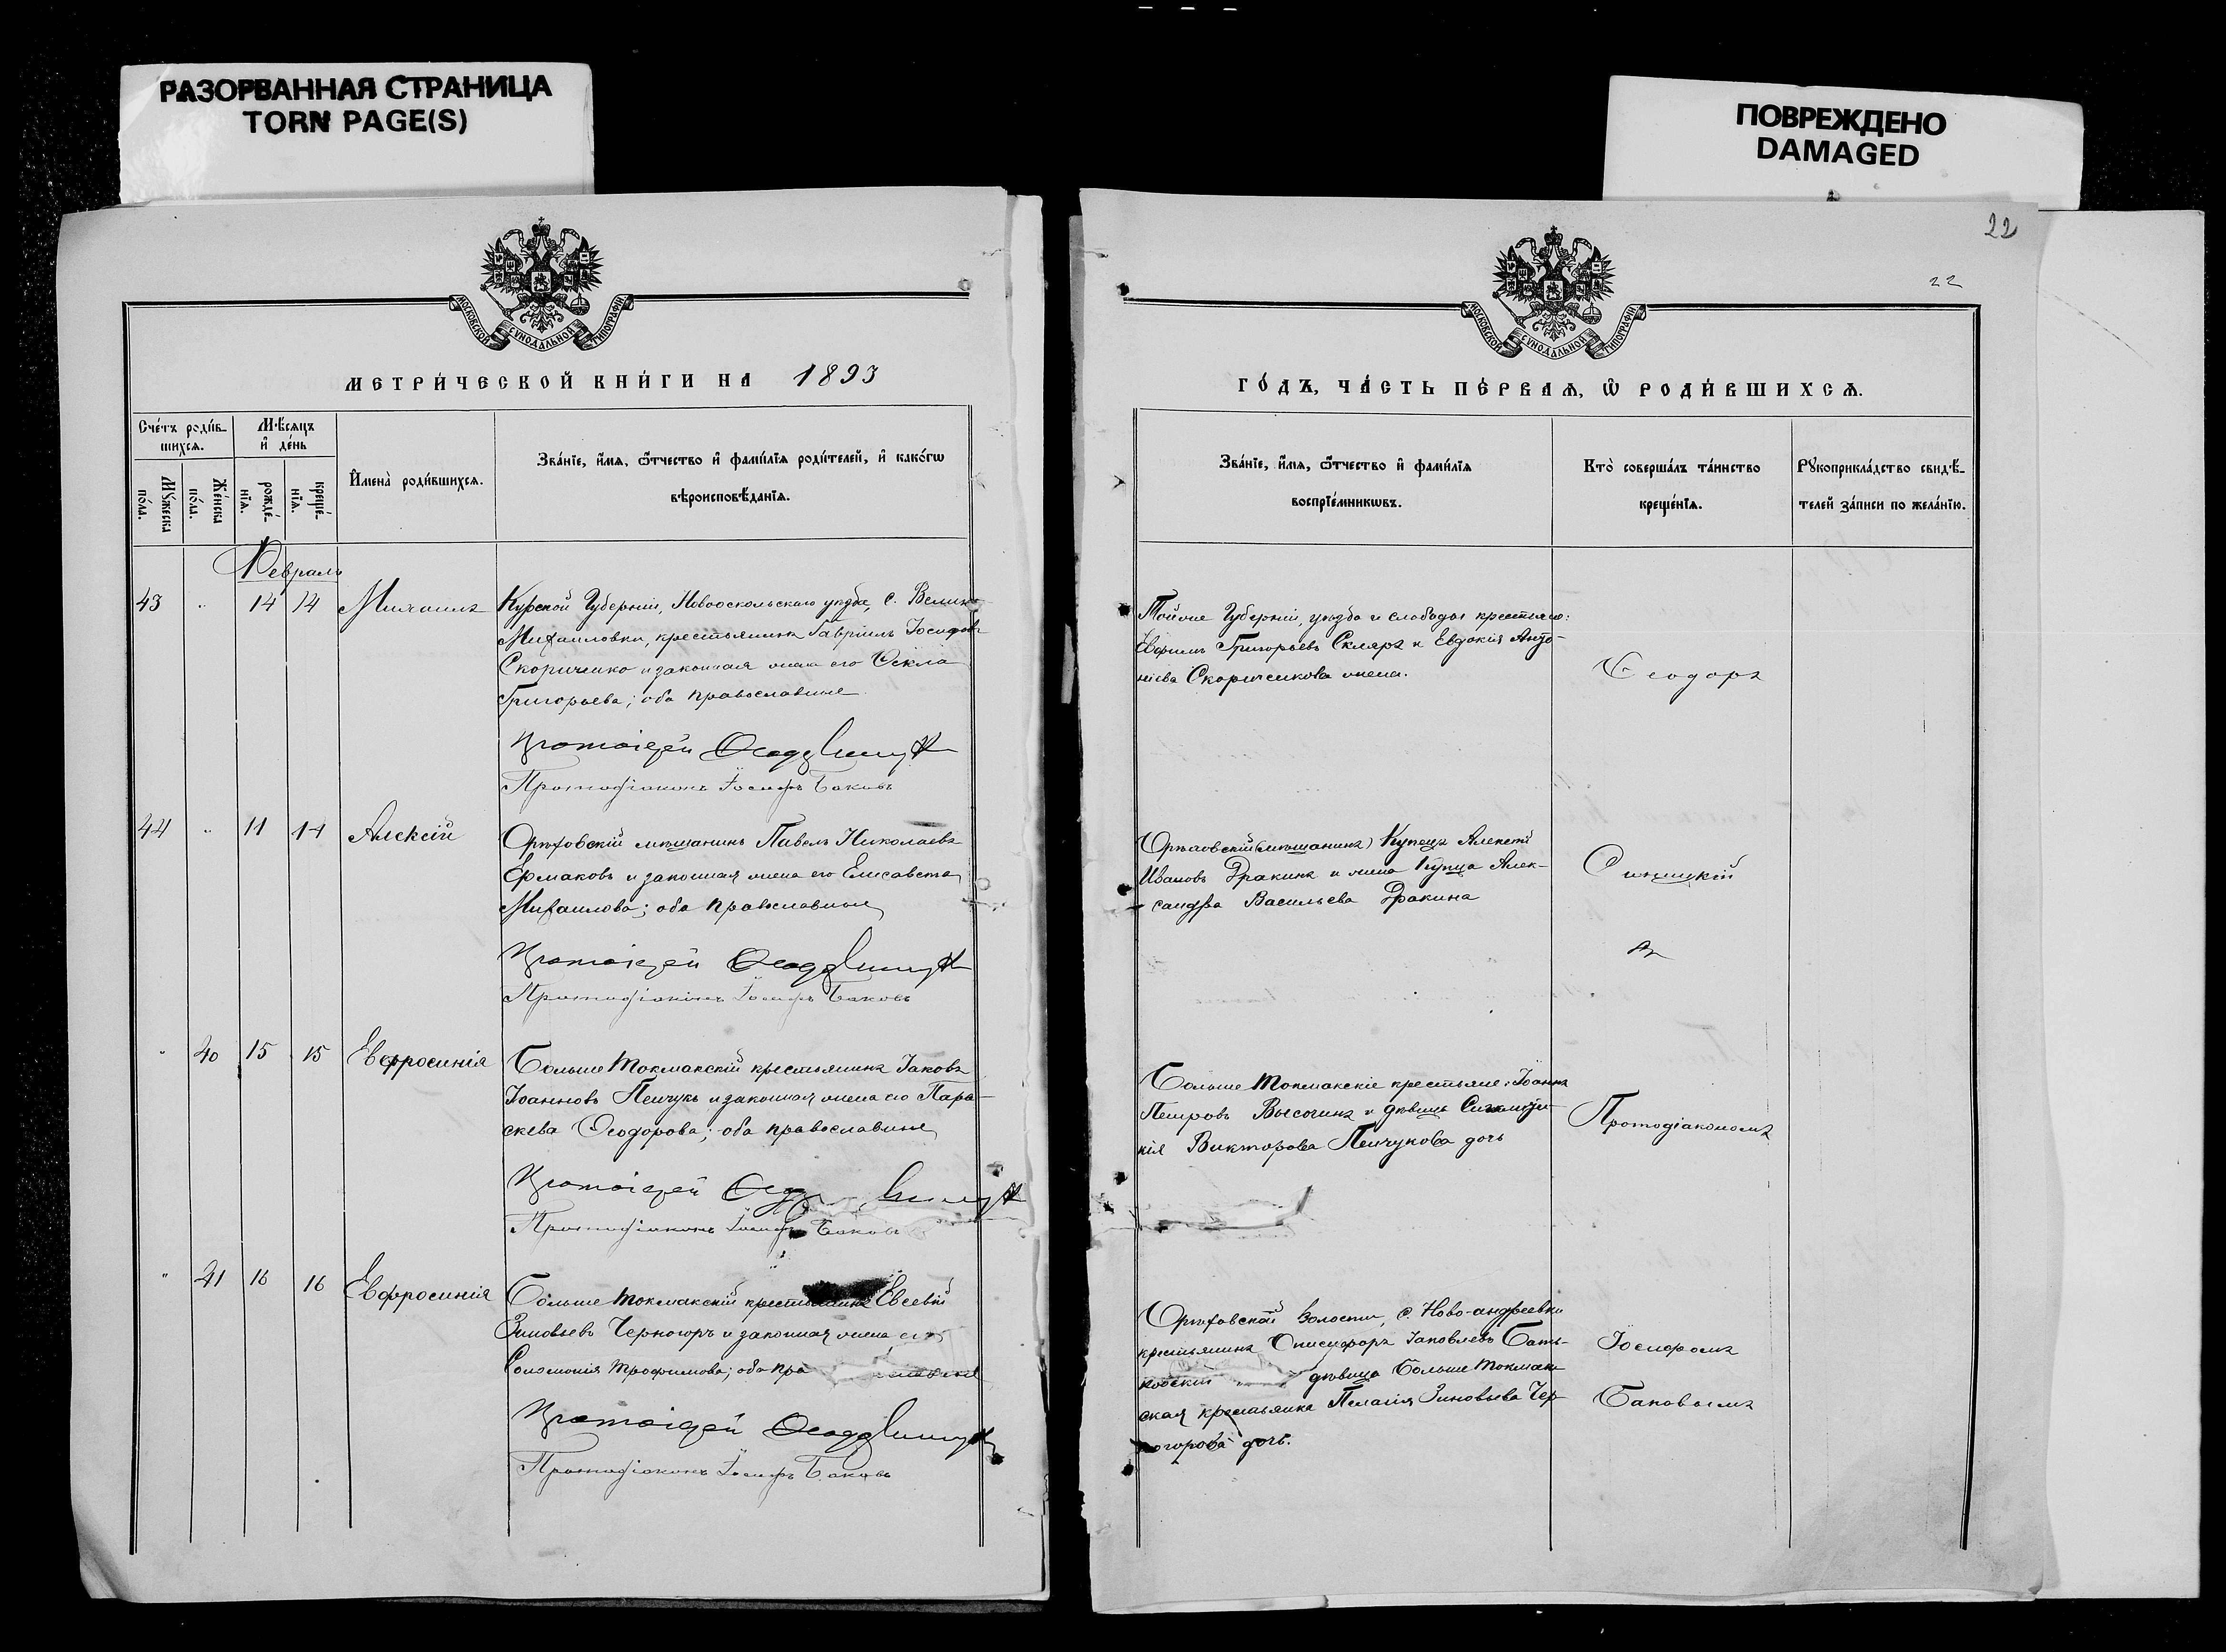 РАЗОРВАННАЯ СТРАНИЦА
TORN PAGE(S)
ПОВРЕЖДЕНО
DAMAGED
МОСКОВСКОЙ СѴНОДАЛЬНОЙ ТИПОГРАФІИ
МЕТРИ́ЧЕСКОЙ КНИ́ГИ НА 1893
Сче́тъ роди́в-
шихсѧ.
Мѣ́сѧцъ
и҆ де́нь
Мꙋ́жеска
по́ла.
Же́нска
по́ла.
рожде́-
нїѧ.
креще́-
нїѧ.
И҆мена̀ роди́вшихсѧ.
Зва́нїе, и҆́мѧ, ѻ҆́тчество и҆ фами́лїѧ роди́телей, и҆ како́гѡ
вѣроисповѣ́данїѧ.
Февраль
43 " 14 14 Михаилъ
Курской Губерніи, Новооскольскаго уѣзда, с. Велико
Михаиловки, крестьянинъ Гавріилъ Іосифовъ
Скориченко и законная жена его Ѳекла
Григорьева; оба православные
Протоіерей Ѳеодоръ
Протодіаконъ Іосифъ Баковъ
44 " 11 14 Алексій
Орѣховскій мѣщанинъ Павелъ Николаевъ
Ермаковъ и законная жена его Елисавета
Михаилова; оба православные
Протоіерей Ѳеодоръ
Протодіаконъ Іосифъ Баковъ
" 40 15 15 Евфросинія
Больше Токмакскій крестьянинъ Іаковъ
Іоанновъ Пенчукъ и законная жена его Пара-
скева Ѳеодорова; оба православные
Протоіерей
Протодіаконъ Іосифъ Баковъ
" 41 16 16 Евфросинія
Больше Токмакскій крестьянинъ Евсевій
Зиновьевъ Черногоръ и законная жена его
Соломонія Трофимова; оба пра
Протоіерей Ѳеодоръ
Протодіаконъ Іосифъ Баковъ
22
22
МОСКОВСКОЙ СѴНОДАЛЬНОЙ ТИПОГРАФІИ
ГО́ДЪ, ЧА́СТЬ ПЕ́РВАѦ, Ѡ҆ РОДИ́ВШИХСѦ.
Зва́нїе, и҆́мѧ, ѻ҆́тчество и҆ фами́лїѧ
воспрїе́мникѡвъ.
Кто̀ соверша́лъ та́инство
креще́нїѧ.
Рꙋкоприкла́дство свидѣ́-
телей за́писи по жела́нїю.
Тойже Губерніи, уѣзда и слободы крестьяне:
Евфимъ Григорьевъ Скляръ и Евдокія Анто-
ніева Скориченкова жена.
Ѳеодоръ
Орѣховскій (мѣщанинъ) Купецъ Алексѣй
Ивановъ Дракинъ и жена Купца Алек-
сандра Васильева Дракина
Синицкій
Больше Токмакскіе крестьяне: Іоаннъ
Петровъ Высочинъ и дѣвица
кія Викторова Пенчукова дочь
Протодіакономъ
Орѣховской Волости, с. Ново-андреевки
крестьянинъ Онисифоръ Іаковлевъ Бать-
ковскій дѣвица Больше Токмак
ская крестьянка Пелагія Зиновьева Чер-
ногорова дочь.
Іосифомъ
Баковымъ